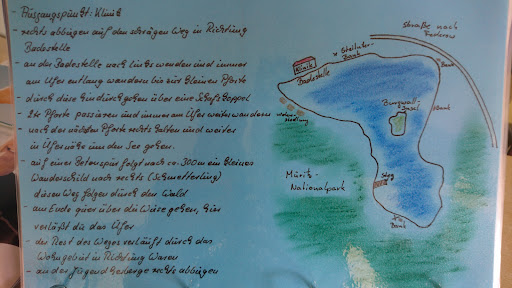 Ausgangspunkt: Klinik
- rechts abbiegen auf den schrägen Weg in Richtung
Badestelle
- an der Badestelle nach links wenden und immer
am Ufer entlang wandern bis zur kleinen Pforte
- durch diese hindurch gehen über eine Schafskoppel
- 2te Pforte passieren und immer am Ufer weiterwandern
- nach der nächsten Pforte rechts halten und weiter
in Ufernähe um den See gehen.
- auf einer Betonspur folgt nach ca. 300m ein kleines
Wanderschild nach rechts (Schmetterling)
diesen Weg folgen durch den Wald
- am Ende quer über die Wiese gehen, hier
verläßt du das Ufer
- der Rest des Weges verläuft durch das
Wohngebiet in Richtung Waren
- an der Jugendherberge rechts abbiegen
Straße nach
Klinik
Badestelle
Bank
Bank
Bank
Burgwall-
Insel
Steg
Müritz-
Nationalpark
Bank